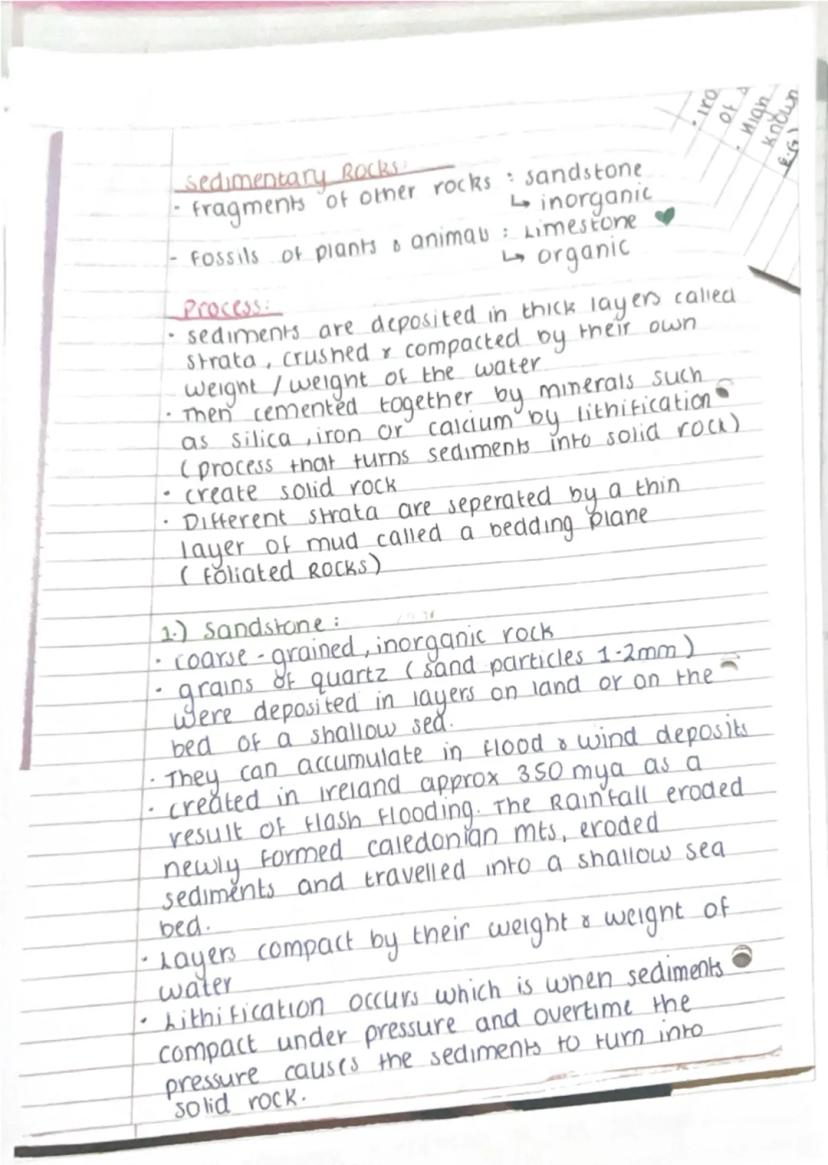 Sedimentary Rocks:
- fragments of other rocks : sandstone
↳ inorganic
- Fossils of plants & animals : Limestone
↳ organic
Process:
· sediments are deposited in thick layers called
strata, crushed & compacted by their own
weight / weight of the water
· Then cemented together by minerals such
as silica, iron or calcium by lithification
(process that turns sediments into solid rock)
· create solid rock
· Different strata are seperated by a thin
layer of mud called a bedding plane
(foliated Rocks)
1.) Sandstone :
· coarse-grained, inorganic rock
· grains of quartz (sand particles 1-2mm)
were deposited in layers on land or on the
bed of a shallow sea.
· They can accumulate in flood & wind deposits
· created in Ireland approx 350 mya as a
result of flash flooding. The Rainfall eroded
newly formed caledonian mts, eroded
sediments and travelled into a shallow sea
bed.
· Layers compact by their weight & weight of
water
· Lithification occurs which is when sediments
compact under pressure and overtime the
pressure causes the sediments to turn into
solid rock.
of
· High
known